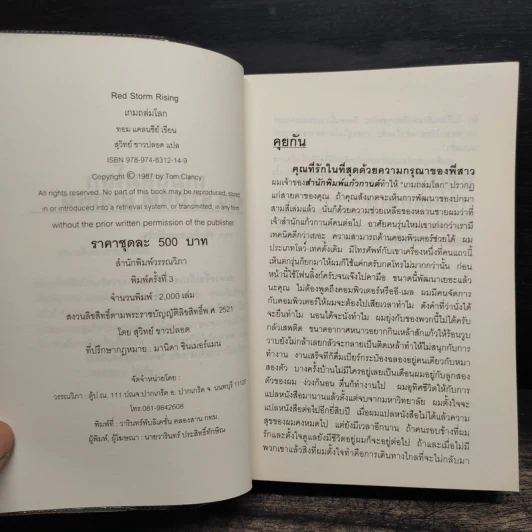 Red Storm Rising
เกมถล่มโลก
ทอม แคลนซีย์ เขียน
สุวิทย์ ขาวปลอด แปล
ISBN 978-974-8312-14-9
Copyright © 1987 by Tom Clancy
All rights reserved. No part of this book may be reproduced, stored
in or introduced into a retrieval system, or transmitted, in any form
without the prior written permission of the publisher.
ราคาชุดละ 500 บาท
สำนักพิมพ์วรรณวิภา
พิมพ์ครั้งที่ 3
จำนวนพิมพ์ : 2,000 เล่ม
สงวนลิขสิทธิ์ตามพระราชบัญญัติลิขสิทธิ์พ.ศ. 2521
โดย สุวิทย์ ขาวปลอด
ที่ปรึกษากฎหมาย : มานิดา ซินเมอร์แมน
จัดจำหน่ายโดย :
วรรณวิภา : ตู้ปณ. 111 ปณจ.ปากเกร็ด อ. ปากเกร็ด จ. นนทบุรี 11120
โทร.081-9842608
พิมพ์ที่ : วารินทร์พับลิเคชั่น คลองสาน กทม.
ผู้พิมพ์, ผู้โฆษณา : นายวารินทร์ ประสิทธิ์ทักษิณ
คุยกัน
คุณที่รักในที่สุดด้วยความกรุณาของพี่สาว
ผมเจ้าของสำนักพิมพ์แก้วกานต์ทำให้ "เกมถล่มโลก" ปรากฏ
แก่สายตาของคุณ ถ้าคุณสังเกตจะเห็นการพัฒนาของปกมา
สามสี่เล่มแล้ว นั่นก็ด้วยความช่วยเหลือของหลานชายผมว่าที่
เจ้าสำนักแก้วกานต์คนต่อไป อาศัยคนรุ่นใหม่เขาเก่งกว่าเรามี
เทคนิคดีกว่าเยอะ ความสามารถด้านคอมพิวเตอร์ช่วยได้ ผม
ประเภทโลว์-เทคดั้งเดิม มีโทรศัพท์กับเขาเครื่องหนึ่งที่คนแถวนี้
เห็นตกรุ่นก็ยกมาให้ผมก็ใช้แค่กดรับกดโทรไม่มากกว่านั้น ก่อน
หน้านี้ใช้โฟนลิ้งก์ครับจนเจ๊งไปคามือ ขนาดนี้พัฒนาเยอะแล้ว
นะคุณ ไม่ต้องพูดถึงคอมพิวเตอร์หรืออี-เมล ผมมีคนจัดการ
กับคอมพิวเตอร์ให้ผมจะต้องไปเสียเวลาทำไม ดังคำที่ว่านั่งได้
จะยืนทำไม นอนได้จะนั่งทำไม ผมยุ่งกับของพวกนี้ไม่ได้ครับ
กลัวเสพติด ขนาดอากาศหนาวอยากกินเหล้าสักแก้วให้ร้อนวูบ
วาบยังไม่กล้าเลยกลัวจะกลายเป็นติดเหล้าทำให้ไม่สนุกกับการ
ทำงาน งานเสร็จที่ก็ดื่มเบียร์กระป๋องฉลองอยู่คนเดียวกับหมา
สองตัว บางครั้งบ้านไม่มีใครอยู่เลยเป็นเดือนผมอยู่กับลูกสอง
ตัวของผม ง่วงก็นอน ตื่นก็ทำงานไป ผมอุทิศชีวิตให้กับการ
แปลหนังสือมานานแล้วตั้งแต่จบจากมหาวิทยาลัย ผมตั้งใจจะ
แปลหนังสือต่อไปอีกยี่สิบปี เมื่อผมแปลหนังสือไม่ได้แล้วความ
สุขของผมคงหมดไป แต่ยังมีเวลาอีกนาน ถ้าคนรอบข้างที่ผม
รักและตั้งใจดูแลยังมีชีวิตอยู่ผมก็จะอยู่ต่อไป ถ้าและเมื่อไม่มี
พวกเขาแล้วสิ่งที่ผมตั้งใจทำคือการเดินทางไกลที่จะไม่กลับมา